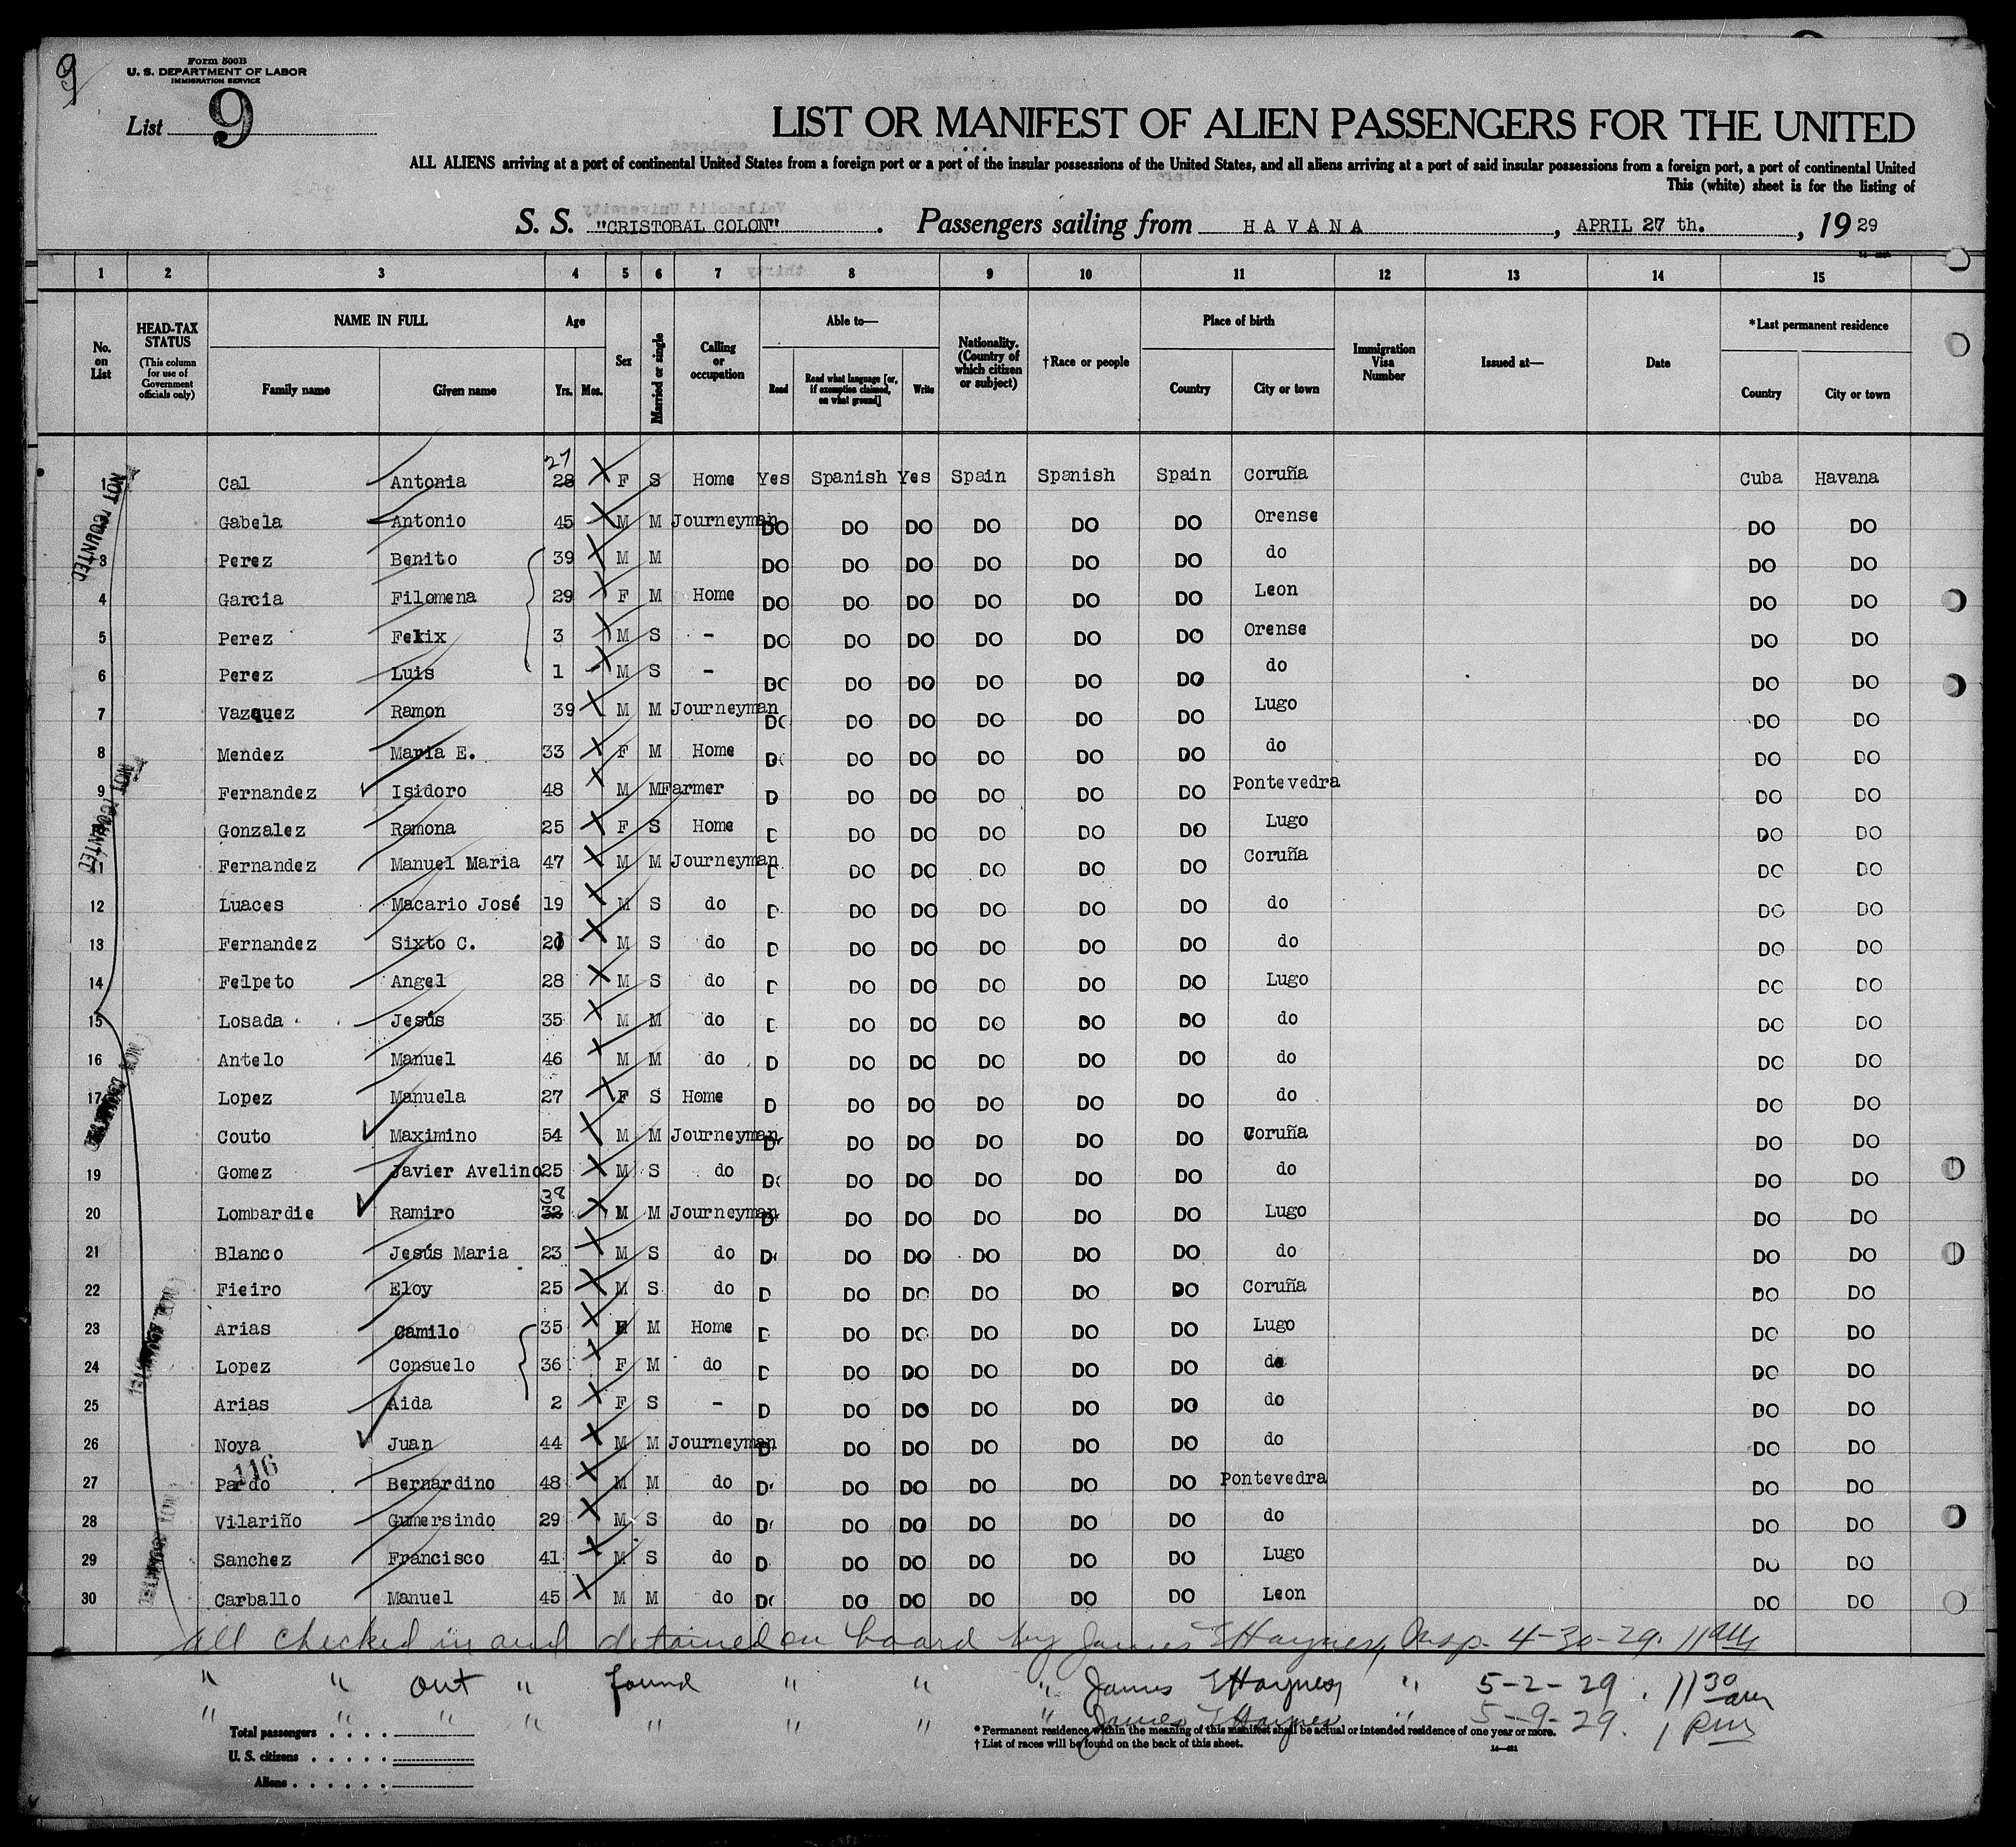 9
Form 500B
U. S. DEPARTMENT OF LABOR
IMMIGRATION SERVICE
List 9
LIST OR MANIFEST OF ALIEN PASSENGERS FOR THE UNITED
ALL ALIENS arriving at a port of continental United States from a foreign port or a port of the insular possessions of the United States, and all aliens arriving at a port of said insular possessions from a foreign port, a port of continental United
This (white) sheet is for the listing of
S. S. "CRISTOBAL COLON" . Passengers sailing from HAVANA , APRIL 27 th. , 19 29
1 2 3 4 5 6 7 8 9 10 11 12 13 14 15
No. on List
HEAD-TAX STATUS (This column for use of Government officials only)
NAME IN FULL Family name Given name
Age Yrs. Mos.
Sex
Married or single
Calling or occupation
Able to— Read Read what language [or, if exemption claimed, on what ground] Write
Nationality. (Country of which citizen or subject)
†Race or people
Place of birth Country City or town
Immigration Visa Number
Issued at—
Date
*Last permanent residence Country City or town
NOT COUNTED
1 Cal Antonia 28 27 F S Home Yes Spanish Yes Spain Spanish Spain Coruña Cuba Havana
Gabela Antonio 45 M M Journeyman DO DO DO DO DO DO Orense DO DO
3 Perez Benito 39 M M DO DO DO DO DO DO do DO DO
4 Garcia Filomena 29 F M Home DO DO DO DO DO DO Leon DO DO
5 Perez Felix 3 M S - DO DO DO DO DO DO Orense DO DO
6 Perez Luis 1 M S - DO DO DO DO DO DO do DO DO
7 Vazquez Ramon 39 M M Journeyman DO DO DO DO DO DO Lugo DO DO
8 Mendez Maria E. 33 F M Home DO DO DO DO DO DO do DO DO
NOT COUNTED
9 Fernandez Isidoro 48 M M Farmer D DO DO DO DO DO Pontevedra DO DO
Gonzalez Ramona 25 F S Home D DO DO DO DO DO Lugo DO DO
11 Fernandez Manuel Maria 47 M M Journeyman D DO DO DO DO DO Coruña DO DO
12 Luaces Macario José 19 M S do D DO DO DO DO DO do DO DO
13 Fernandez Sixto C. M S do D DO DO DO DO DO do DO DO
14 Felpeto Angel 28 M S do D DO DO DO DO DO Lugo DO DO
15 Losada Jesús 35 M M do D DO DO DO DO DO do DO DO
16 Antelo Manuel 46 M M do D DO DO DO DO DO do DO DO
17 Lopez Manuela 27 F S Home D DO DO DO DO DO do DO DO
Couto Maximino 54 M M Journeyman DO DO DO DO DO DO Coruña DO DO
19 Gomez Javier Avelino 25 M S do DO DO DO DO DO DO do DO DO
20 Lombardie Ramiro 32 38 M M Journeyman DO DO DO DO DO DO Lugo DO DO
21 Blanco Jesús Maria 23 M S do DO DO DO DO DO DO do DO DO
22 Fieiro Eloy 25 M S do D DO DO DO DO DO Coruña DO DO
23 Arias Camilo 35 M M Home D DO DO DO DO DO Lugo DO DO
24 Lopez Consuelo 36 F M do D DO DO DO DO DO do DO DO
25 Arias Aida 2 F S - D DO DO DO DO DO do DO DO
26 Noya Juan 44 M M Journeyman D DO DO DO DO DO do DO DO
116
27 Pardo Bernardino 48 M M do DO DO DO DO DO DO Pontevedra DO DO
28 Vilariño Gumersindo 29 M S do DO DO DO DO DO DO do DO DO
29 Sanchez Francisco 41 M S do D DO DO DO DO DO Lugo DO DO
30 Carballo Manuel 45 M M do DO DO DO DO DO DO Leon DO DO
All checked in and detained on board by James E Haynes, Insp. 4-30-29. 11 am
" " out " found " " " James E Haynes " 5-2-29. 11 30 am
" " " " " " " " James E Haynes " 5-9-29. 1 pm
Total passengers . . . .
U. S. citizens . . . . .
Aliens . . . . . .
* Permanent residence within the meaning of this manifest shall be actual or intended residence of one year or more.
† List of races will be found on the back of this sheet.